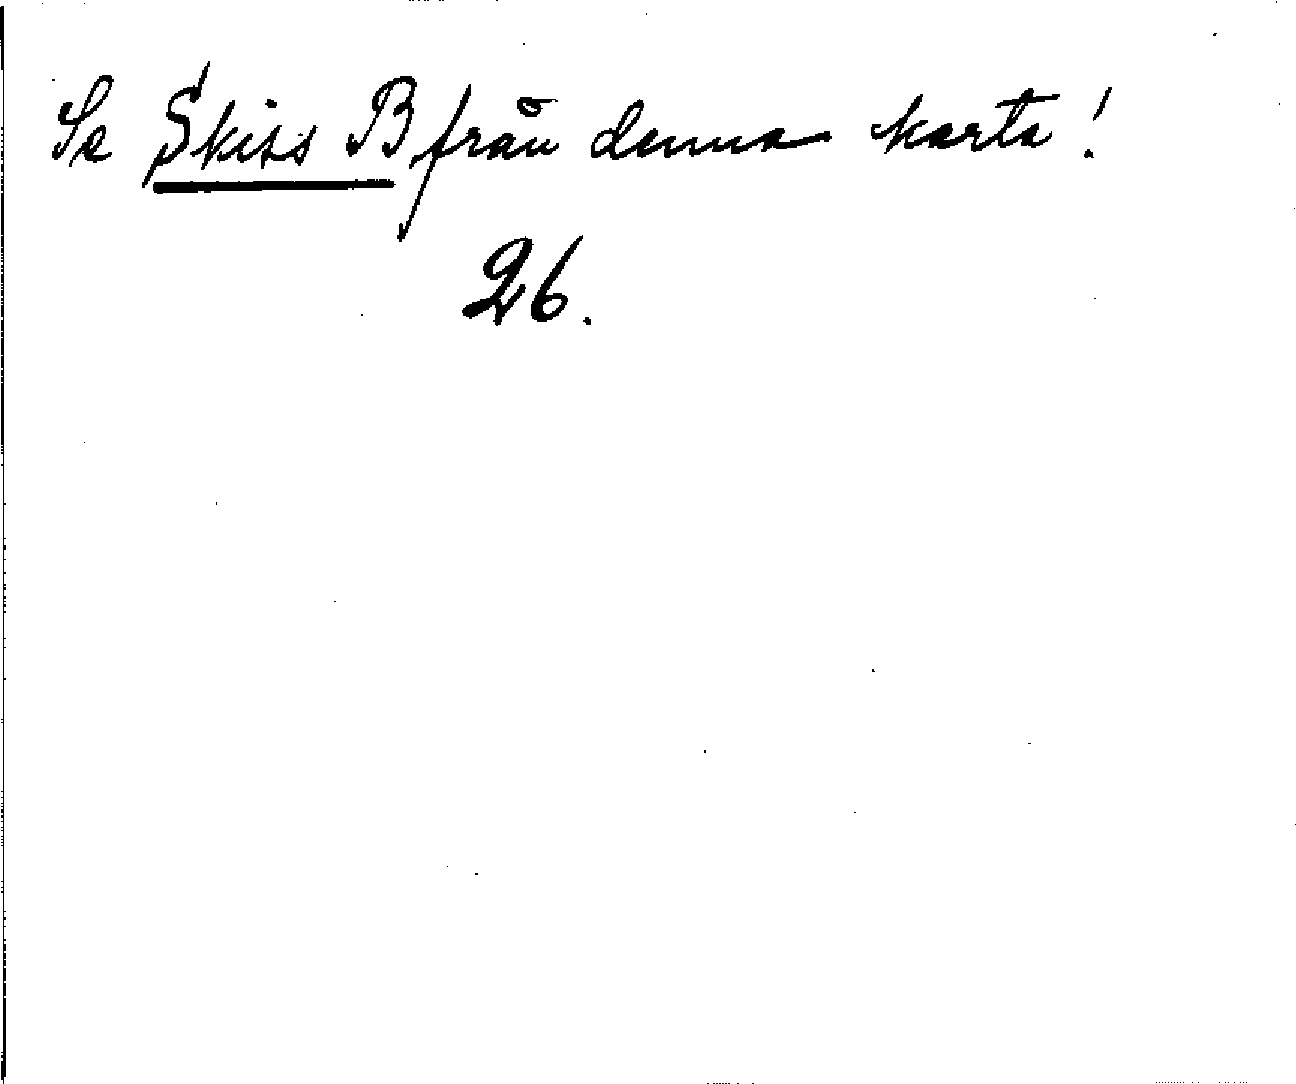 Se Skiss B från denna karta!
26.